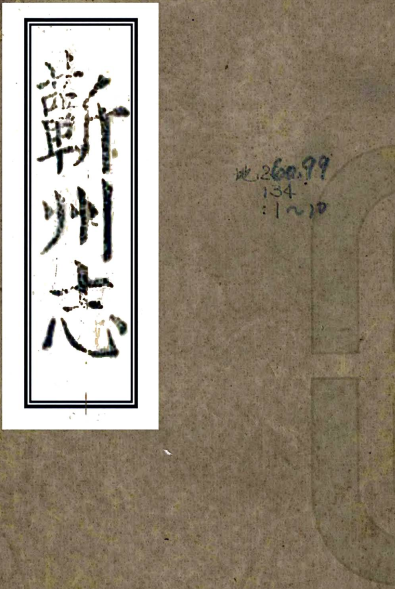 蘄州志
地260.99
134
:1～10